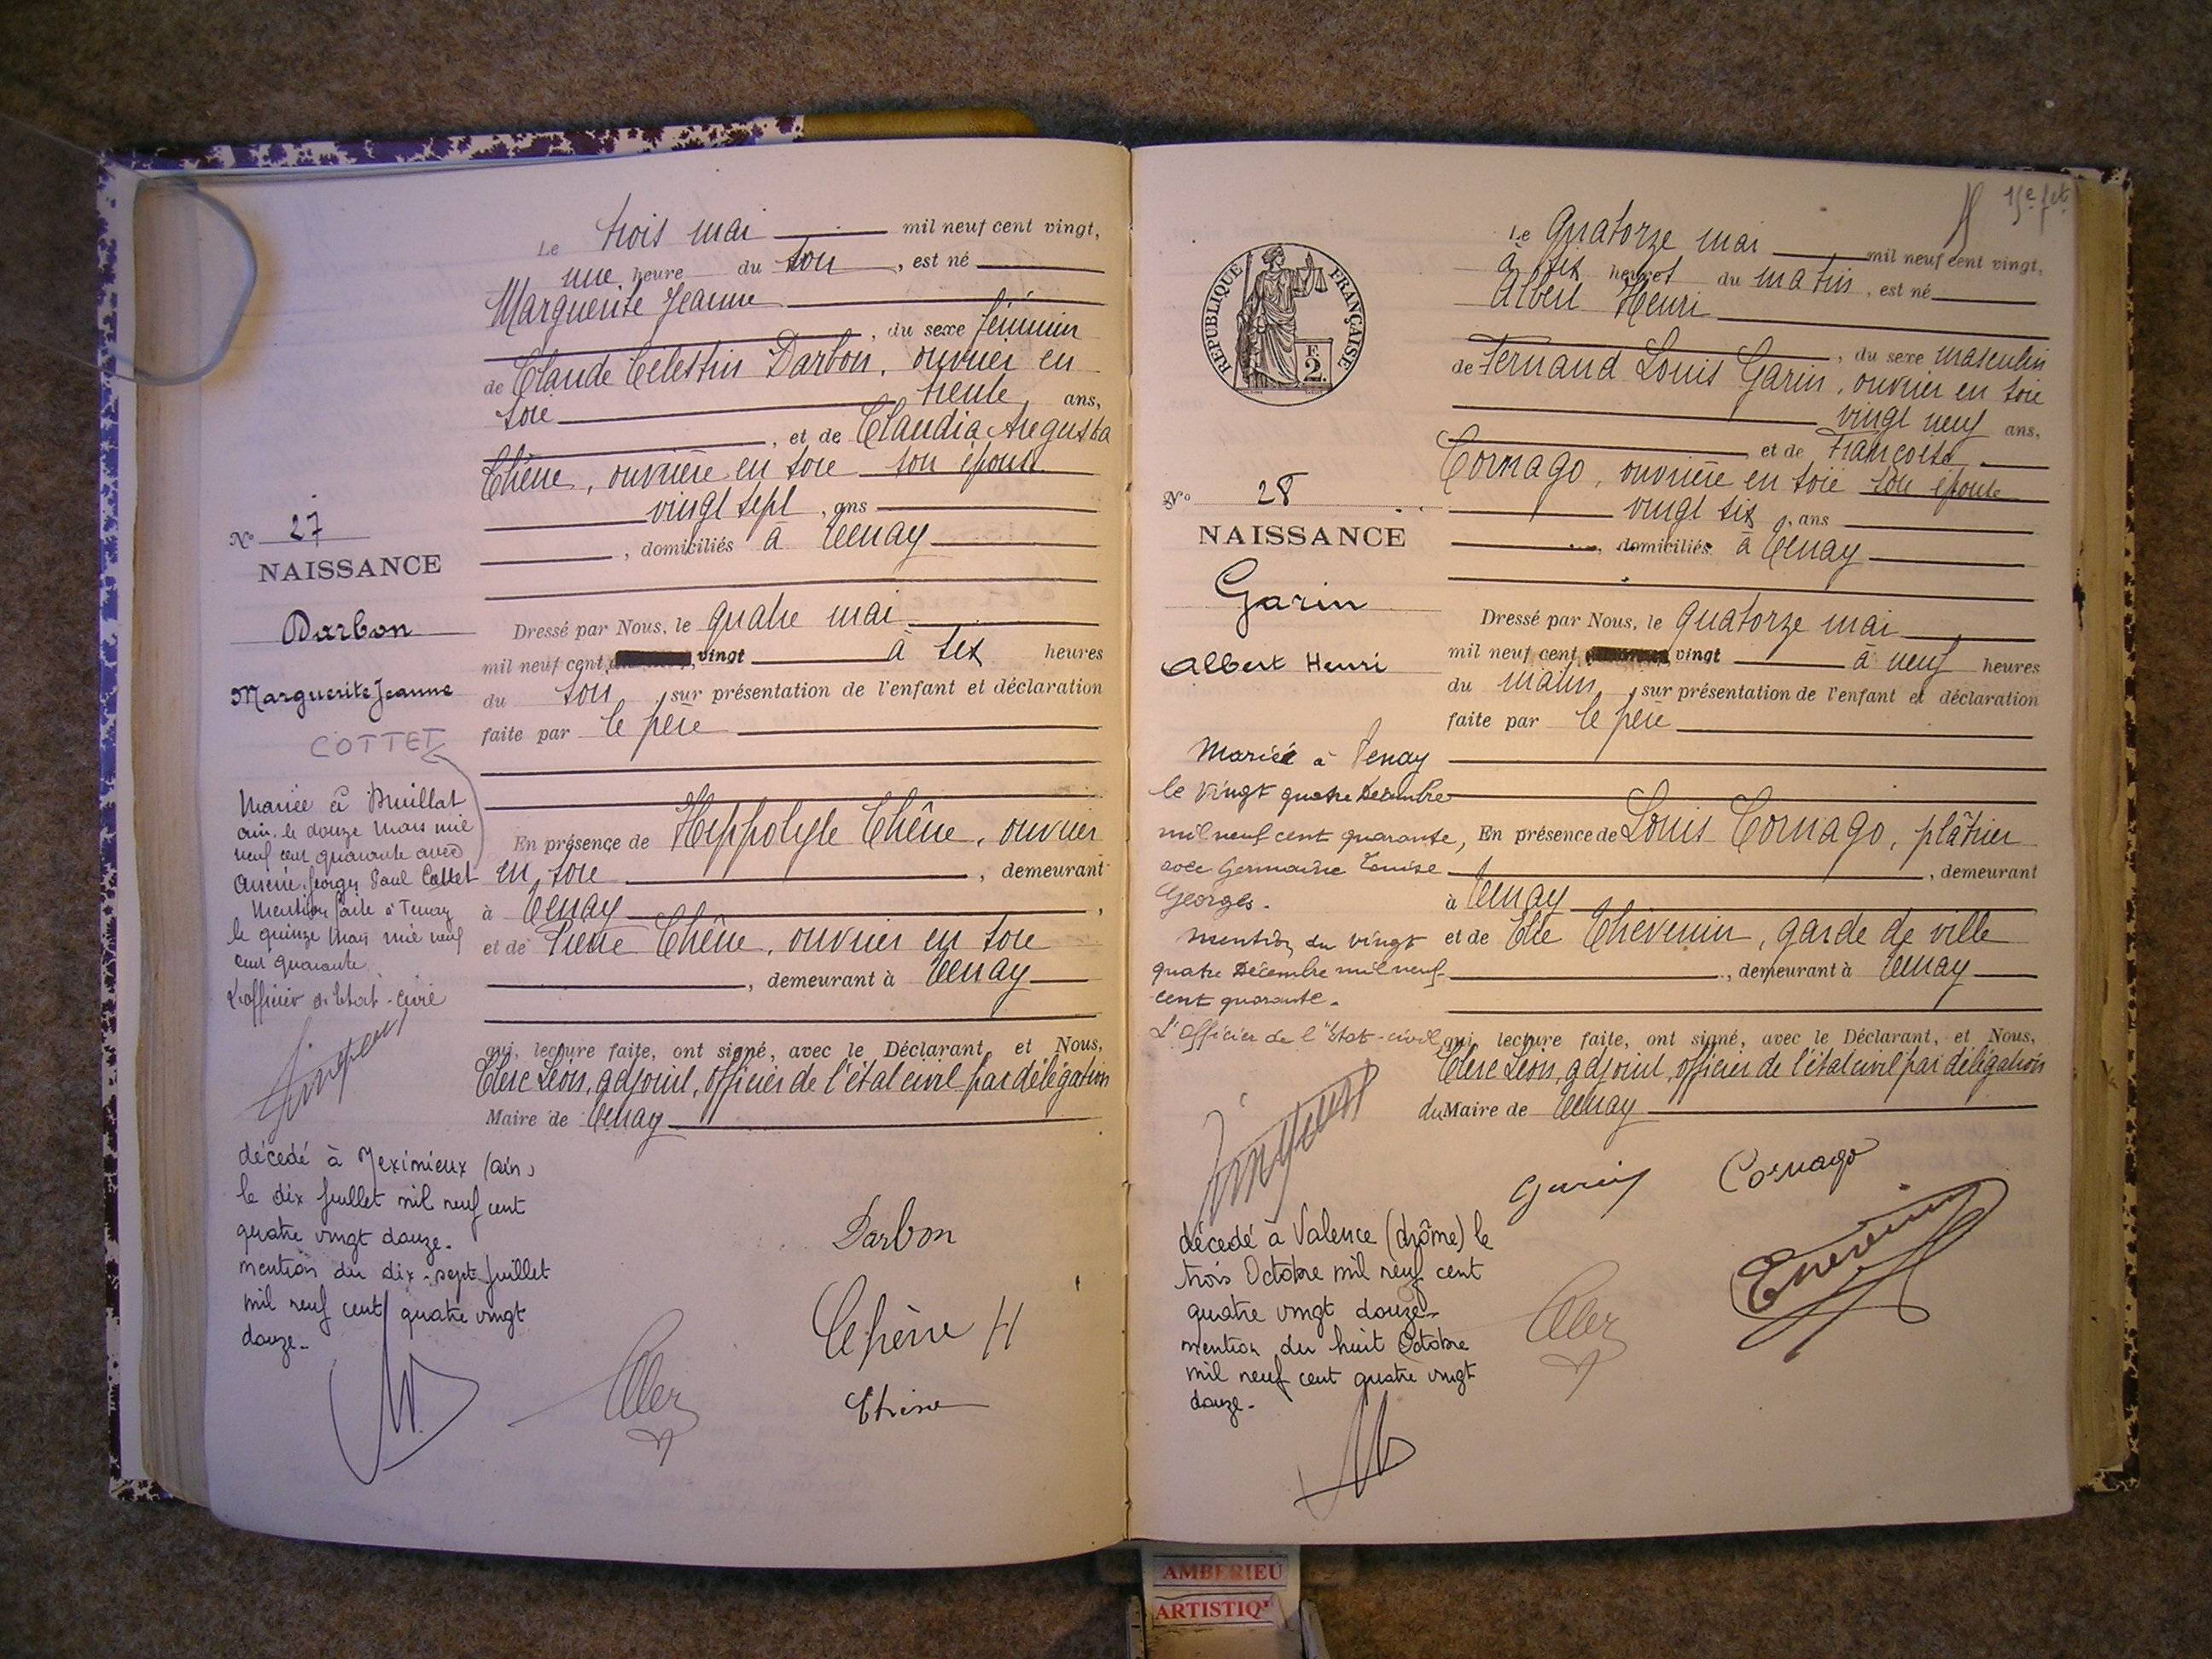 Le trois mai mil neuf cent vingt,
une heure du soir, est né
Marguerite Jeanne
, du sexe féminin
de Claude Célestin Darbon, ouvrier en
soie trente ans,
, et de Claudia Augusta
Chêne, ouvrière en soie son épouse
vingt sept, ans
, domiciliés à Tenay
N° 27
NAISSANCE
Darbon
Marguerite Jeanne
COTTET
Dressé par Nous, le quatre mai
mil neuf cent vingt à six heures
du soir, sur présentation de l'enfant et déclaration
faite par le père
En présence de Hippolyte Chêne, ouvrier
en soie, demeurant
à Tenay,
et de Pierre Chêne, ouvrier en soie
, demeurant à Tenay
qui, lecture faite, ont signé, avec le Déclarant, et Nous,
Clerc Léon, adjoint, officier de l'état civil par délégation
Maire de Tenay
Mariée à Druillat
ain. le douze Mars mil
neuf cent quarante avec
Georges Paul Cottet
Mention faite à Tenay
le quinze Mars mil neuf
cent quarante
L'officier d'Etat-civil
décédé à Meximieux (ain)
le dix juillet mil neuf cent
quatre vingt douze.
mention du dix-sept juillet
mil neuf cent quatre vingt
douze.
Darbon
Chêne H
Chêne
15e fet
Le Quatorze mai mil neuf cent vingt,
à six heures du matin, est né
Albert Henri
, du sexe masculin
de Fernand Louis Garin, ouvrier en soie
vingt neuf ans,
et de Françoise
Cornago, ouvrière en soie son épouse
vingt six, ans
, domiciliés à Tenay
RÉPUBLIQUE FRANÇAISE
F
2
N° 28
NAISSANCE
Garin
Albert Henri
Dressé par Nous, le quatorze mai
mil neuf cent vingt à neuf heures
du matin, sur présentation de l'enfant et déclaration
faite par le père
En présence de Louis Cornago, plâtrier
, demeurant
à Tenay
et de Elie Thévenin, garde de ville
, demeurant à Tenay
qui, lecture faite, ont signé, avec le Déclarant, et Nous,
Clerc Léon, adjoint, officier de l'état civil par délégation
du Maire de Tenay
Marié à Tenay
le vingt quatre Décembre
mil neuf cent quarante,
avec Germaine Louise
Georges.
Mention du vingt
quatre Décembre mil neuf
cent quarante.
L'Officier de l'Etat-civil
décédé à Valence (drôme) le
trois Octobre mil neuf cent
quatre vingt douze
mention du huit Octobre
mil neuf cent quatre vingt
douze.
Garin
Cornago
Thévenin
AMBERIEU
ARTISTIQ